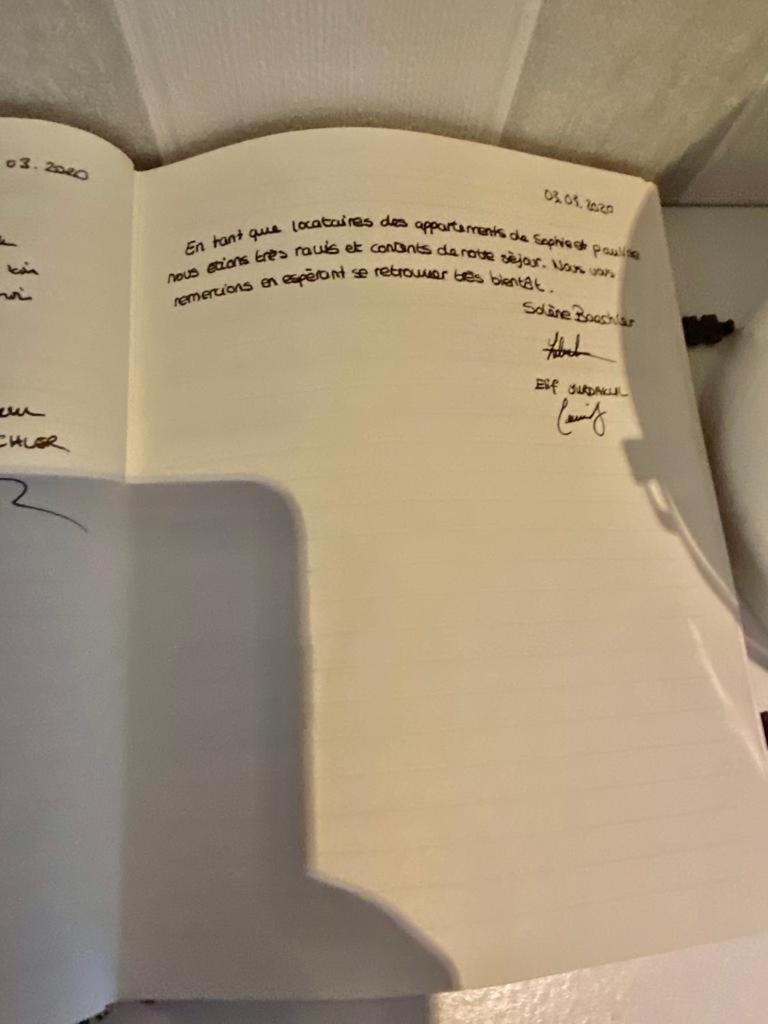 03.2020
CHLER
03.03.2020
En tant que locataires des appartements de Sophie et
nous étions très ravis et contents de notre séjour. Nous vous
remercions en espérant se retrouver très bientôt.
Solène
Elif